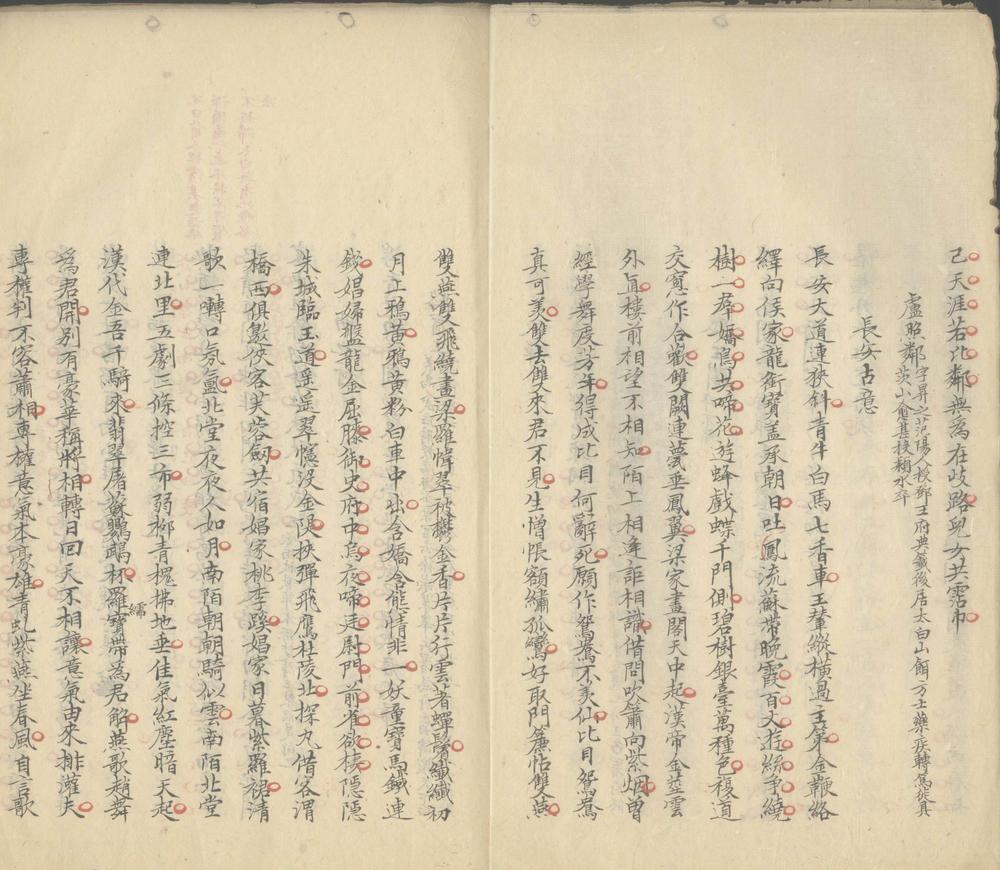 己天涯若比鄰無為在歧路兒女共霑巾
盧照鄰
字昇之范陽人授鄧王府典籤後居太白山餌方士藥疾轉篤徙具
茨山愈甚投潁水卒
長安古意
長安大道連狹斜青牛白馬七香車玉輦縱橫過主第金鞭絡
繹向侯家龍銜寶蓋承朝日吐鳳流蘇帶晚霞百丈遊絲爭繞
樹一群嬌鳥共啼花遊蜂戲蝶千門側碧樹銀臺萬種色複道
交窻作合歡雙闕連甍垂鳳翼梁家畫閣天中起漢帝金莖雲
外直樓前相望不相知陌上相逢詎相識借問吹簫向紫烟曽
經學舞度芳年得成比目何辭死願作鴛鴦不羨仙比目鴛鴦
真可羨雙去雙來君不見生憎悵額繡孤鸞好取門簾帖雙燕
雙燕雙飛繞畫梁羅幃翠被欎金香片片行雲著蟬鬢纖纖初
月上鴉黃鴉黃粉白車中出含嬌含態情非一妖童寶馬鐵連
錢娼婦盤龍金屈膝御史府中烏夜啼廷尉門前雀欲棲隱隱
朱城臨玉道遥遥翠幰没金隄挾彈飛鷹杜陵北探丸借客渭
橋西俱邀俠客芙蓉劒共宿娼家桃李蹊娼家日暮紫羅裙清
歌一囀口氛氳北堂夜夜人如月南陌朝朝騎似雲南陌北堂
連北里五劇三條控三市弱柳青槐拂地垂佳氣紅塵暗天起
漢代金吾千騎來翡翠屠蘇鸚鵡杯羅寶帶為君解燕歌趙舞
襦
為君開別有豪華稱將相轉日回天不相讓意氣由來排灌夫
專權判不容蕭相專權意氣本豪雄青虬紫燕坐春風自言歌